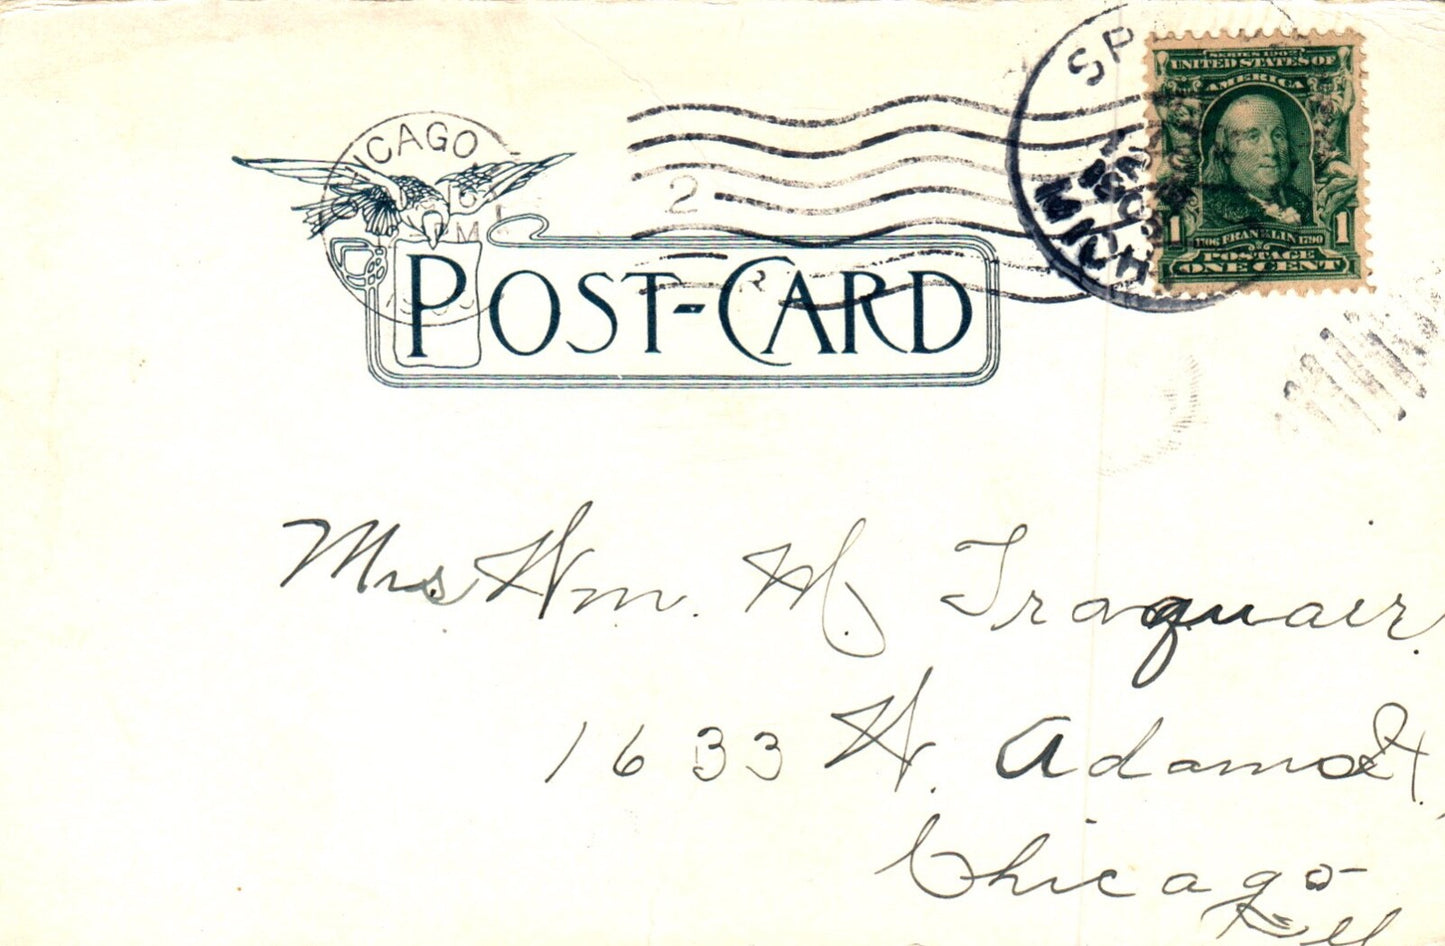 CHICAGO
2
POST-CARD
SP
MICH
SERIES 1902
UNITED STATES OF
AMERICA
1 1
1706 FRANKLIN 1790
POSTAGE
ONE CENT
Mrs Wm. M. Traquair.
1633 W. Adams St.,
Chicago
Ill